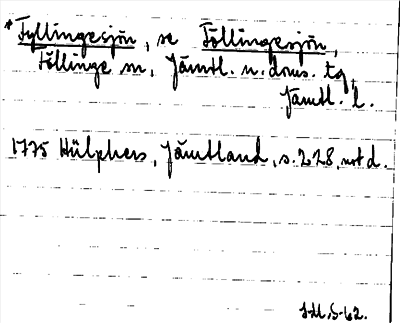 *Fyllingesjön, se Föllingesjön,
Föllinge sn, Jämtl. n. doms. tg,
Jämtl. l.
1775 Hülphers, Jämtland, s. 228, not d.